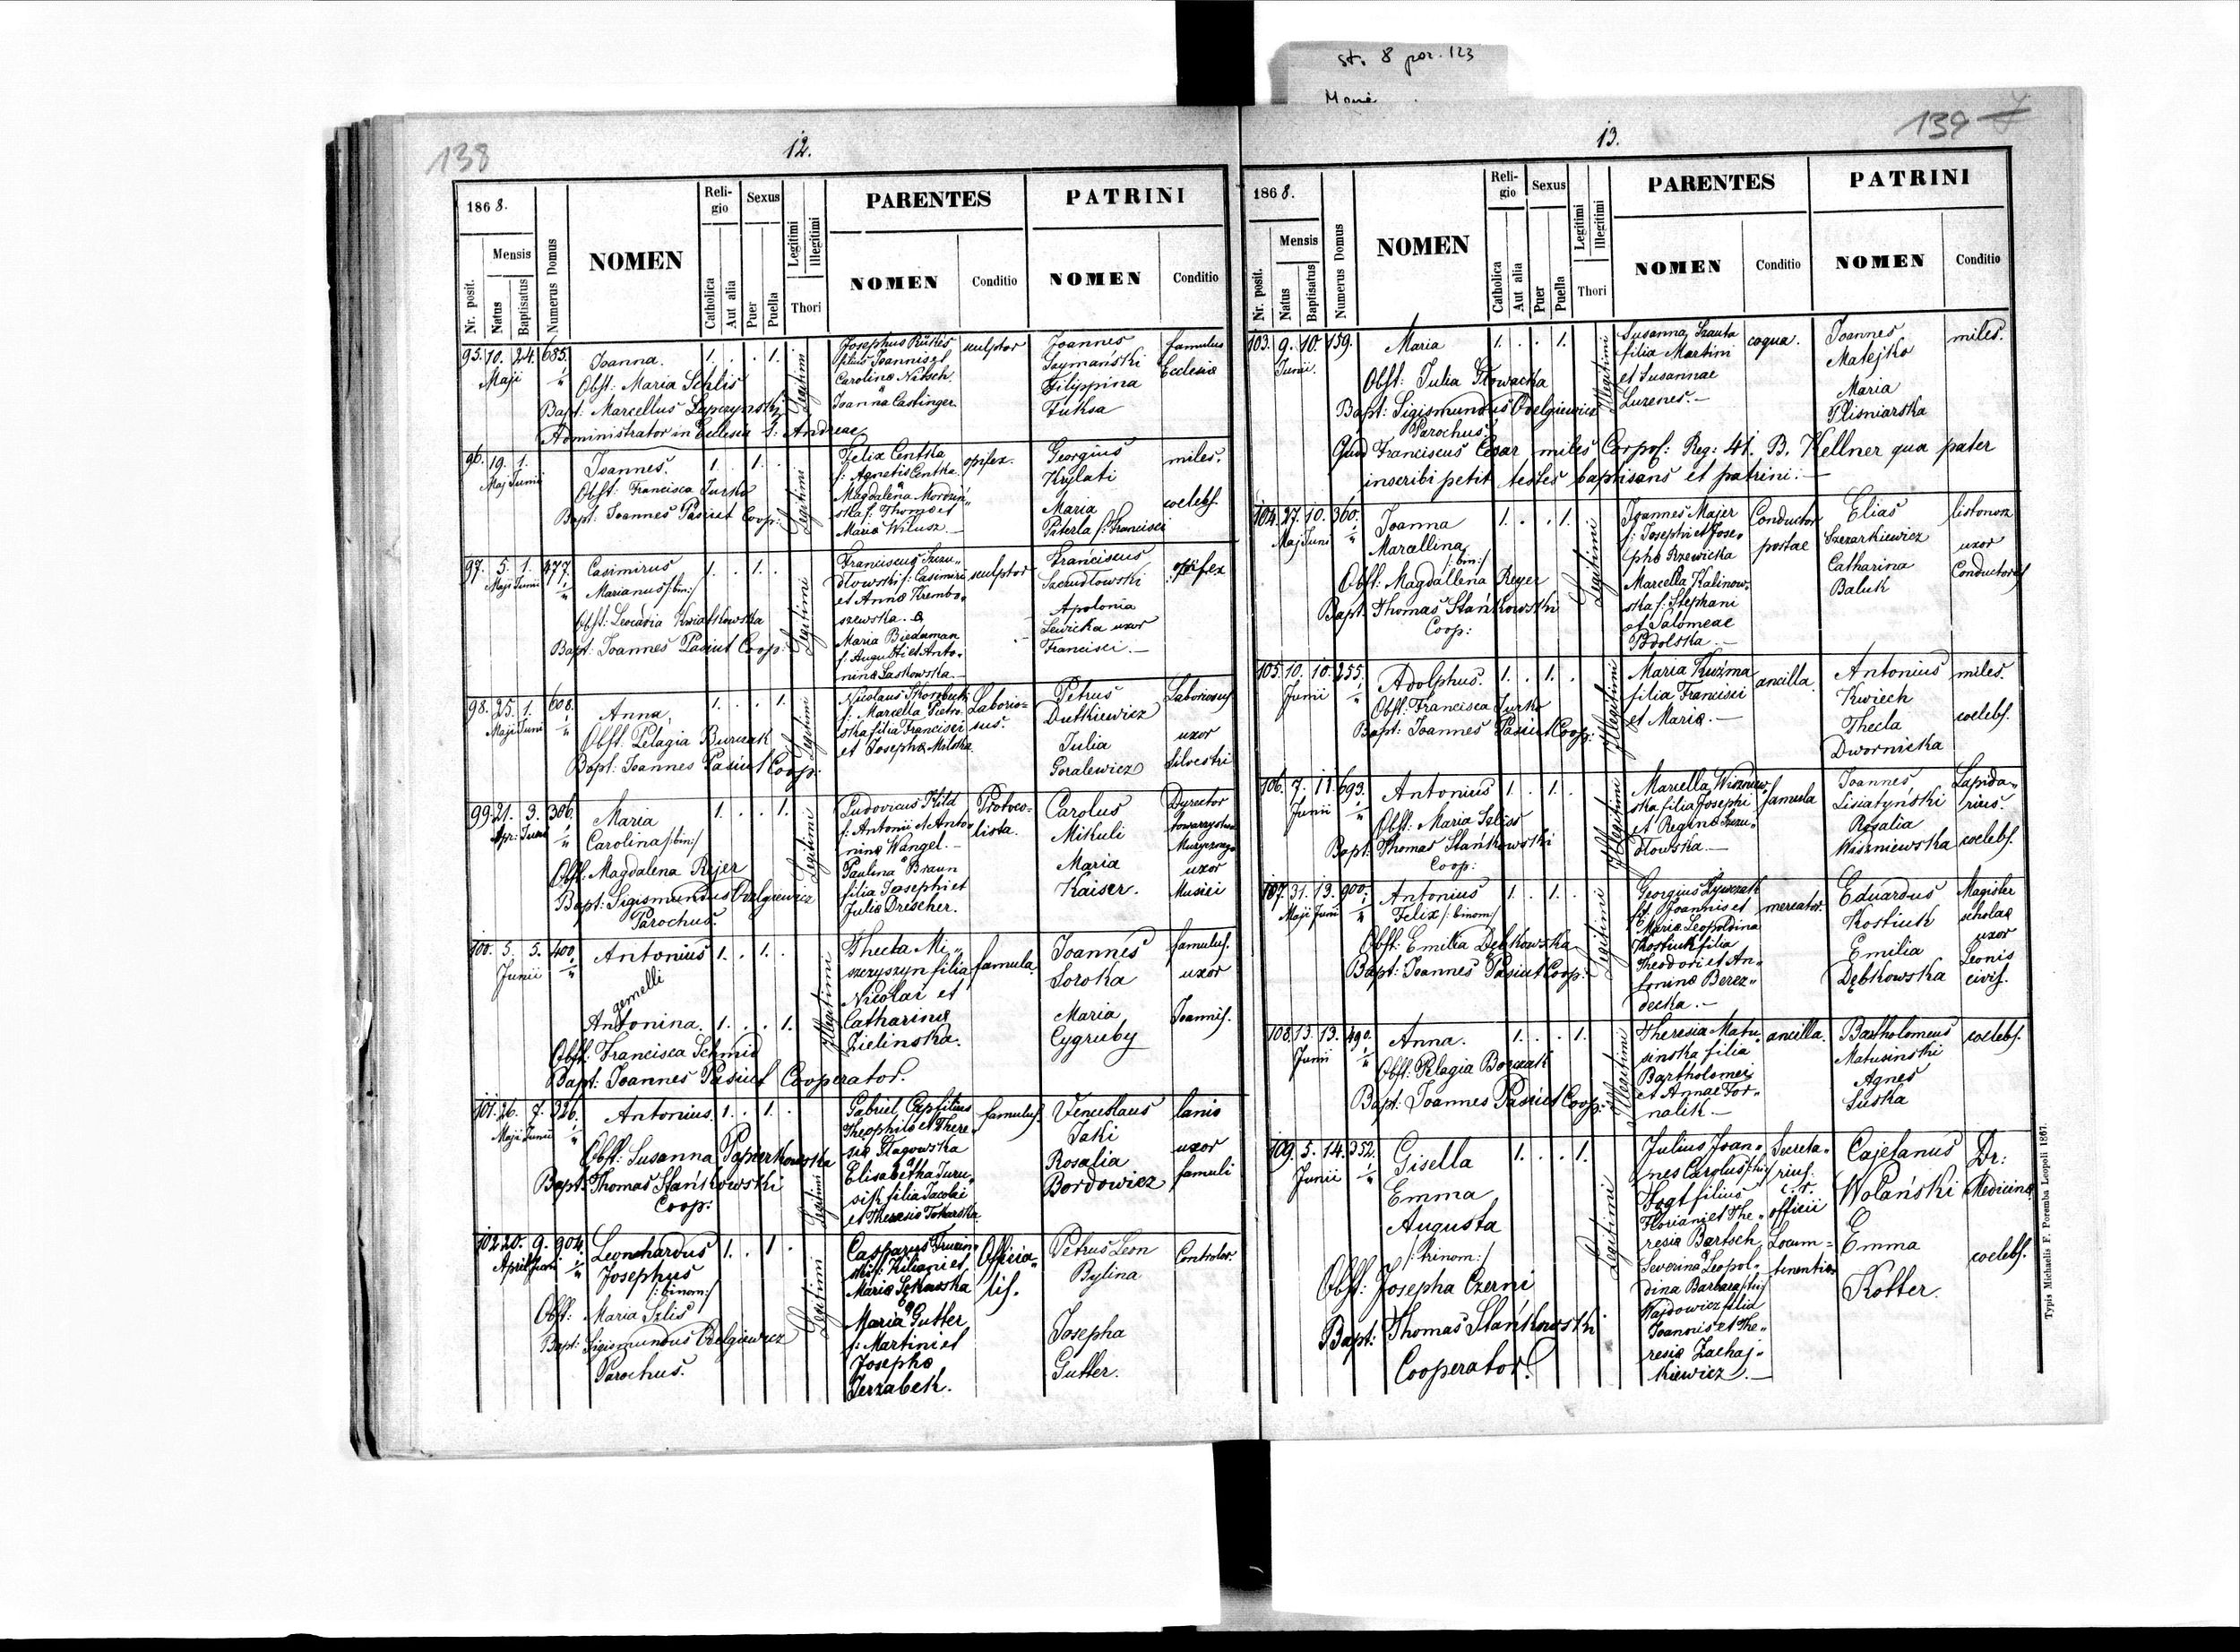 st. 8 por. 123
138
12.
1868.
Nr. posit.
Mensis
Natus
Baptisatus
Numerus Domus
NOMEN
Religio
Catholica
Aut alia
Sexus
Puer
Puella
Legitimi
Illegitimi
Thori
PARENTES
NOMEN
Conditio
PATRINI
NOMEN
Conditio
95. 10. 24. 685. Joanna. 1. . . 1.
Maji
Obst: Maria Schlis
Bapt: Marcellus
Administrator in Ecclesia S: Andreae
Legitimi
Josephus
filius Joannis et
Carolina Nitsch
Joanna Castinger
sculptor
Joannes
Gaymański
Filippina
Fuksa
famulus
Ecclesiæ
96. 19. 1. Joannes. 1. . 1. .
Maj Junii
Obst: Francisca Jurko
Bapt. Joannes Pasiut Coop:
Legitimi
Felix Centka
f: Agnetis Centka
Magdalena
ska f: Thoma et
Maria Wilusz.—
opifex.
Georgius
Krylati
Maria
Paterla f: Francisci
miles.
coelebs.
97. 5. 1. 477. Casimirus 1. . 1. .
Maji Junii
Marianus /:bin:/
Obst: Leocadia Kwiatkowska
Bapt: Joannes Pasiut Coop:
Legitimi
Franciscus Szczu„
dłowski f: Casimiri
et Anna Krembo„
szewska. &
Maria Biedaman
f: Augusti et Anto„
nina Laskowska.—
sculptor
Franciscus
Szczudłowski
Apolonia
Lewicka uxor
Francisci.—
opifex
98. 25. 1. 608. Anna, 1. . . 1.
Maji Junii
Obst. Pelagia Burczak
Bapt: Joannes Pasiut Coop:
Legitimi
Nicolaus
f: Marcella Pietro„
ska filia Francisci
et Josepha
Laborio=
sus.
Petrus
Dutkiewicz
Julia
Goralewicz
Laboriosus
uxor
Silvestri
99. 21. 3. 306. Maria 1. . . 1.
Apr: Junii
Carolina /:bin:/
Obst: Magdalena Rejer
Bapt: Sigismundus Odelgiewicz
Parochus.
Legitimi
Ludovicus Hild
f: Antonii et Anto„
nina Wangel.—
Paulina Braun
filia Josephi et
Julia Drescher.
Protoco=
lista.
Carolus
Mikuli
Maria
Kaiser.
Dyrector
towarzystwa
Muzycznego
uxor
Musici
100. 5. 5. 400. Antonius 1. . 1. .
Junii
gemelli
Antonina. 1. . . 1.
Obst. Francisca Schmid
Bapt: Joannes Pasiut Cooperator.
Illegitimi
Thecla Mi„
szczyszyn filia
Nicolai et
Catharina
Zielinska.
famula
Joannes
Soroka
Maria
Cygruby
famulus.
uxor
Joannis.
101. 26. 7. 326. Antonius. 1. . 1. .
Maji Junii
Obst: Susanna Papierkowska
Bapt: Thomas Stańkowski
Coop:
Legitimi
Gabriel
Theophila et There„
sia
Elisabetha Juru„
sik filia Jacobi
et Theresia Tokarska
famulus.
Venceslaus
Jaki
Rosalia
Bordowicz
lanio
uxor
famuli
102. 20. 9. 904. Leonhardus 1. . 1. .
Aprili Junii
Josephus
/:binom:/
Obst: Maria Szlis
Bapt: Sigismundus Odelgiewicz
Parochus.
Legitimi
Casparus
f: Kiliani et
Maria
&
Maria Gutter
f: Martini et
Josepha
Jerzabek.
Officia„
lis.
Petrus Leon
Bylina
Josepha
Gutter.
Controlor.
139
13.
1868.
Nr. posit.
Mensis
Natus
Baptisatus
Numerus Domus
NOMEN
Religio
Catholica
Aut alia
Sexus
Puer
Puella
Legitimi
Illegitimi
Thori
PARENTES
NOMEN
Conditio
PATRINI
NOMEN
Conditio
103. 9. 10. 159. Maria 1. . . 1.
Junii.
Obst: Julia Głowacka
Bapt: Sigismundus Odelgiewicz
Parochus.
Illegitimi
Susanna Szauta
filia Martini
et Susannae
Luzenes.—
coqua.
Joannes
Matejko
Maria
Plisniarska
miles.
Quod Franciscus Cesar miles Corpof: Reg: 41. B. Kellner qua pater
inscribi petit testes baptisans et patrini.—
104. 27. 10. 360. Joanna 1. . . 1.
Maj Juni
Marcellina
/:bin:/
Obst: Magdallena Reyer
Bapt: Thomas Stańkowski
Coop:
Legitimi
Joannes Majer
f: Josephi et Jose„
pha Rzewicka
Marcella Kalinow„
ska f: Stephani
et Salomeae
Podolska.—
Conductor
postae
Elias
Szezarkiewicz
Catharina
Baluk
listonosz
uxor
Conductoris
105. 10. 10. 255. Adolphus. 1. . 1. .
Junii
Obst: Francisca Jurko
Bapt: Joannes Pasiut Coop:
Illegitimi
Maria Kuzma
filia Francisci
et Maria.—
ancilla.
Antonius
Kwiech
Thecla
Dwornicka
miles.
coelebs.
106. 7. 11. 693. Antonius 1. . 1. .
Junii
Obst: Maria Szlis
Bapt: Thomas Stańkowski
Coop:
Illegitimi
Marcella Wiszniew„
ska filia Josephi
et Regina Szczu„
dłowska.—
famula
Joannes
Lisiatyński
Rosalia
Wiszniewska
Lapida„
rius.
coelebs.
107. 31. 13. 900. Antonius 1. . 1. .
Maji Junii
Felix /:binom:/
Obst: Emilia Dębkowska
Bapt: Joannes Pasiut Coop:
Legitimi
Georgius
fil: Joannis et
Maria Leopoldina
Kostiuk filia
Theodori et An„
tonina Berez„
decka.—
mercator.
Eduardus
Kostiuk
Emilia
Dębkowska
Magister
scholae
uxor
Leonis
civis.
108. 13. 13. 490. Anna. 1. . . 1.
Junii
Obst: Pelagia Borczak
Bapt: Joannes Pasiut Coop:
Illegitimi
Theresia Matu„
sinska filia
Bartholomei
et Annae For„
nalik.—
ancilla.
Bartholomeus
Matusinski
Agnes
Suska
coelebs.
109. 5. 14. 352. Gisella 1. . . 1.
Junii
Emma
Augusta
/:trinom:/
Obst: Josepha Czerni
Bapt: Thomas Stańkowski
Cooperator.
Legitimi
Julius Joan„
nes Carolus
Fogt filius
Floriani et The„
resia Bartsch
Severina Leopol„
dina Barbara
Wajdowicz filia
Joannis et The„
resia Zachaj„
kiewicz.—
Secreta„
rius.
officii
Locum=
tenentiae
Cajetanus
Wolański
Emma
Kotter.
Dr:
Medicinæ
coelebs.
Typis Michaelis F. Poremba Leopoli 1867.